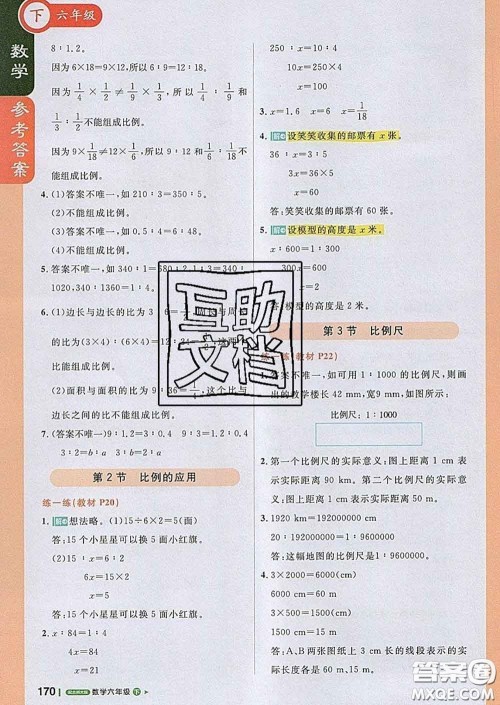 下 六年级
数学
参考答案
8∶1.2。
因为 6×18=9×12，所以 6∶9=12∶18。
因为 1/4×1/2≠1/9×1/3，所以 1/4∶1/9 和
1/3∶1/2 不能组成比例。
9×1/18≠12×1/6，所以 9∶12 和 1/6∶1/18
不能组成比例。
4. (1)答案不唯一，如 210∶3=350∶5。
(2)不能组成比例。
(3)答案不唯一，如 0.5∶4=6∶48。
(4)不能组成比例。
5. 答案不唯一，如 340∶1=
1020,340∶1=
6. (1)边长与边长的比
(3×4)∶(6×4)=
比能组成比例。
(2)面积与面积的比为 9∶36=1/4，这个比与
边长之间的比不能组成比例。
7. (答案不唯一)9∶1.2=3∶0.4 9∶3=
1.2∶0.4
第 2 节 比例的应用
练一练(教材 P20)
1. 想法略。(1)15÷6×2=5(面)
答:15 个小星星可以换 5 面小红旗。
(2)15∶x=6∶2
6x=15×2
x=5
答:15 个小星星可以换 5 面小红旗。
2. x∶84=1∶4
4x=84
x=21
170 数学六年级 下
250∶x=10∶4
10x=250×4
x=100
3. x=1.6 x=6 x=1/18
4. 设笑笑收集的邮票有 x 张。
36∶x=3∶5
3x=36×5
x=60
答:笑笑收集的邮票有 60 张。
5. 设模型的高度是 x 米。
x∶600=1∶300
答:模型的高度是 2 米。
第 3 节 比例尺
练一练(教材 P22)
答案不唯一，如可用 1∶1000 的比例尺，则画
出的教学楼长 42 mm，宽9 mm，如图所示。
比例尺:1∶1000
2. 第一个比例尺的实际意义:图上距离 1 cm 表
示实际距离 90 km。第二个比例尺的实际意
义:图上距离 1 cm 表示实际距离 15 m。
3. 1920 km=192000000 cm
20∶192000000=1∶9600000
答:这幅地图的比例尺为 1∶9600000。
4. 3×2000=6000(cm)
6000 cm=60 m
3×500=1500(cm)
1500 cm=15 m
答:A、B两张图纸上 3 cm 长的线段表示的实
际长度各是 60 m、15 m。
互助
文档
答案圈
MXQE.COM